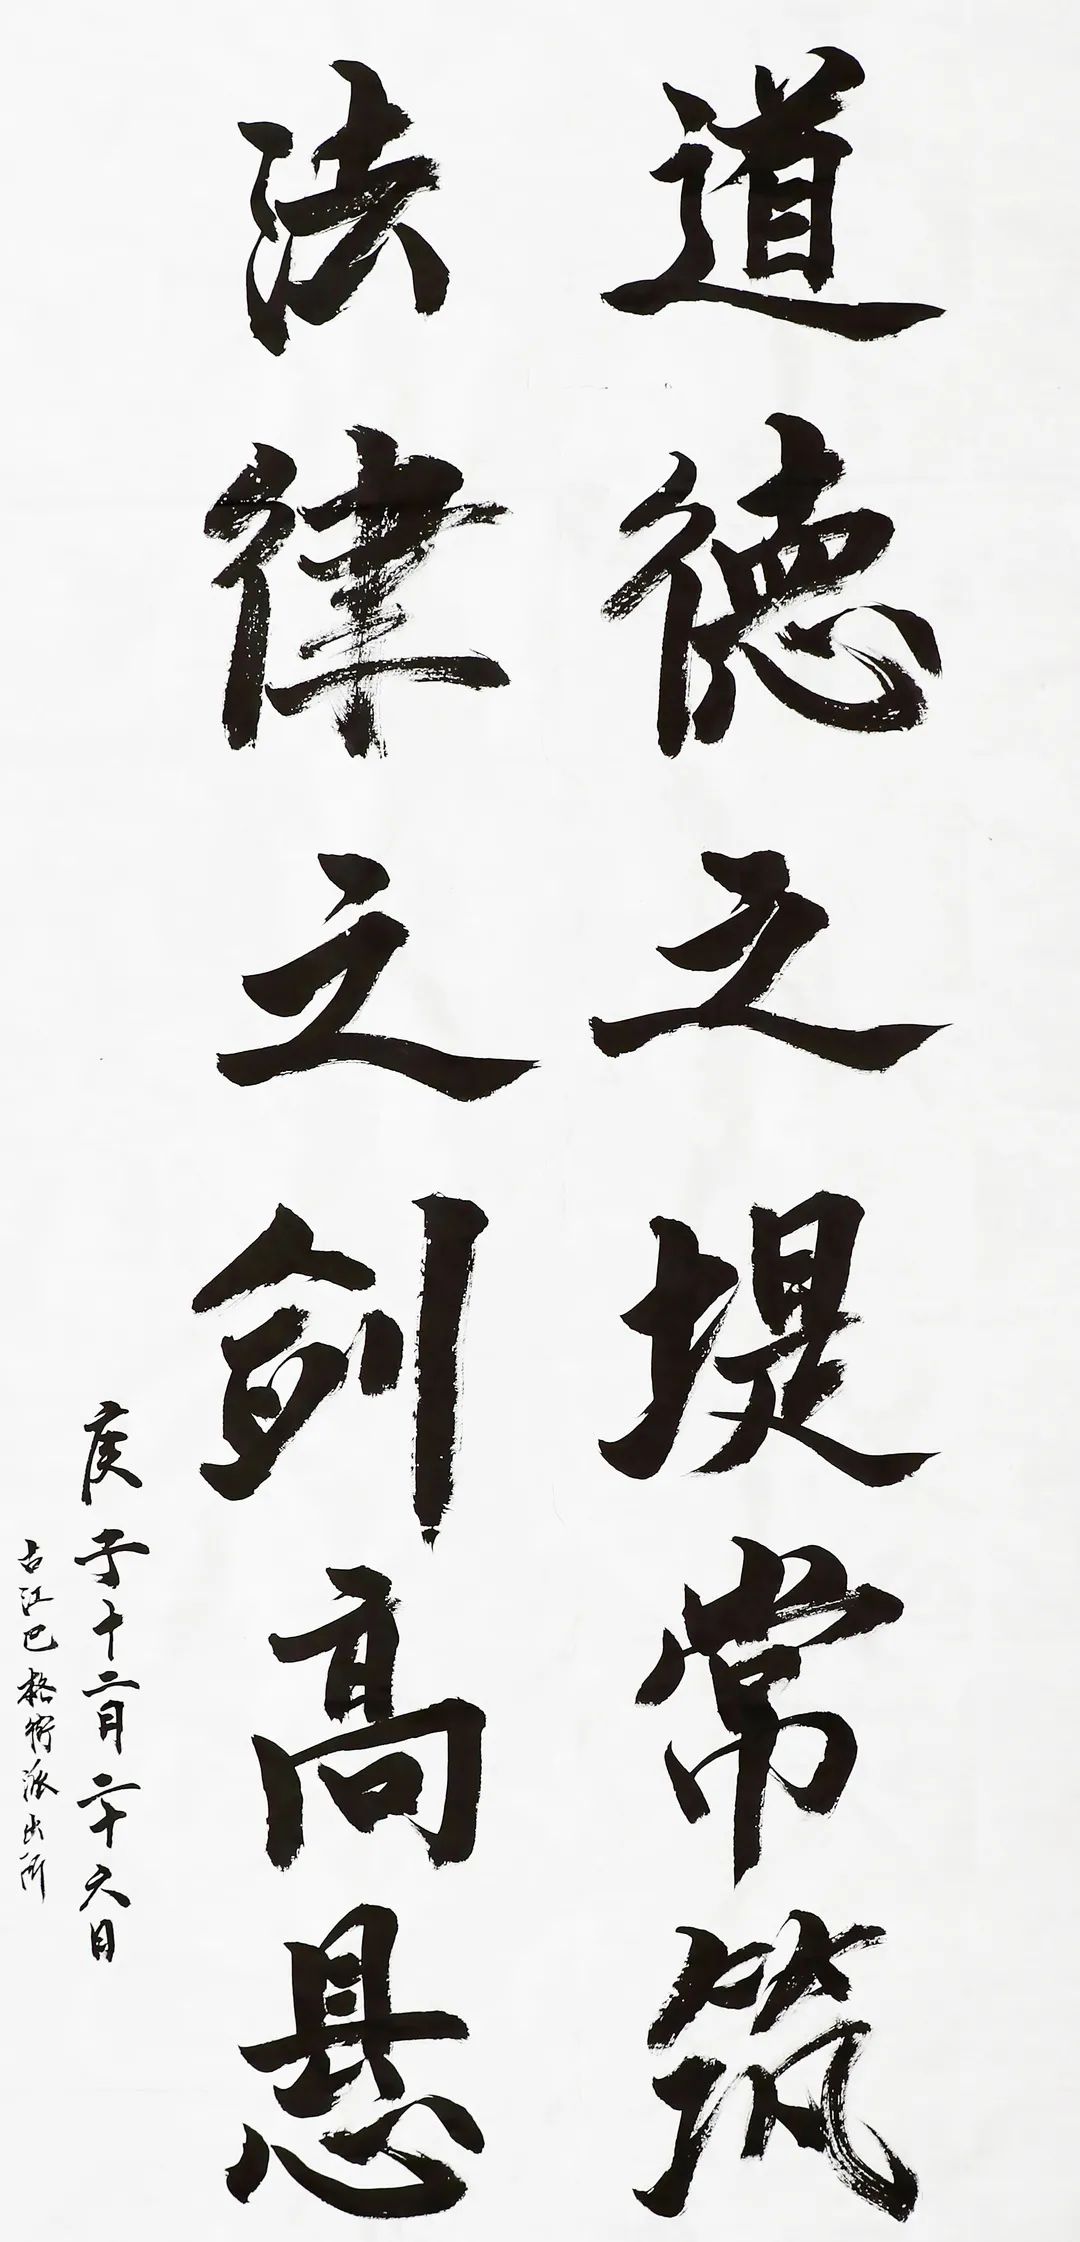 道德之堤常筑
法律之剑高悬
庚子十二月二十六日
古江巴格街派出所